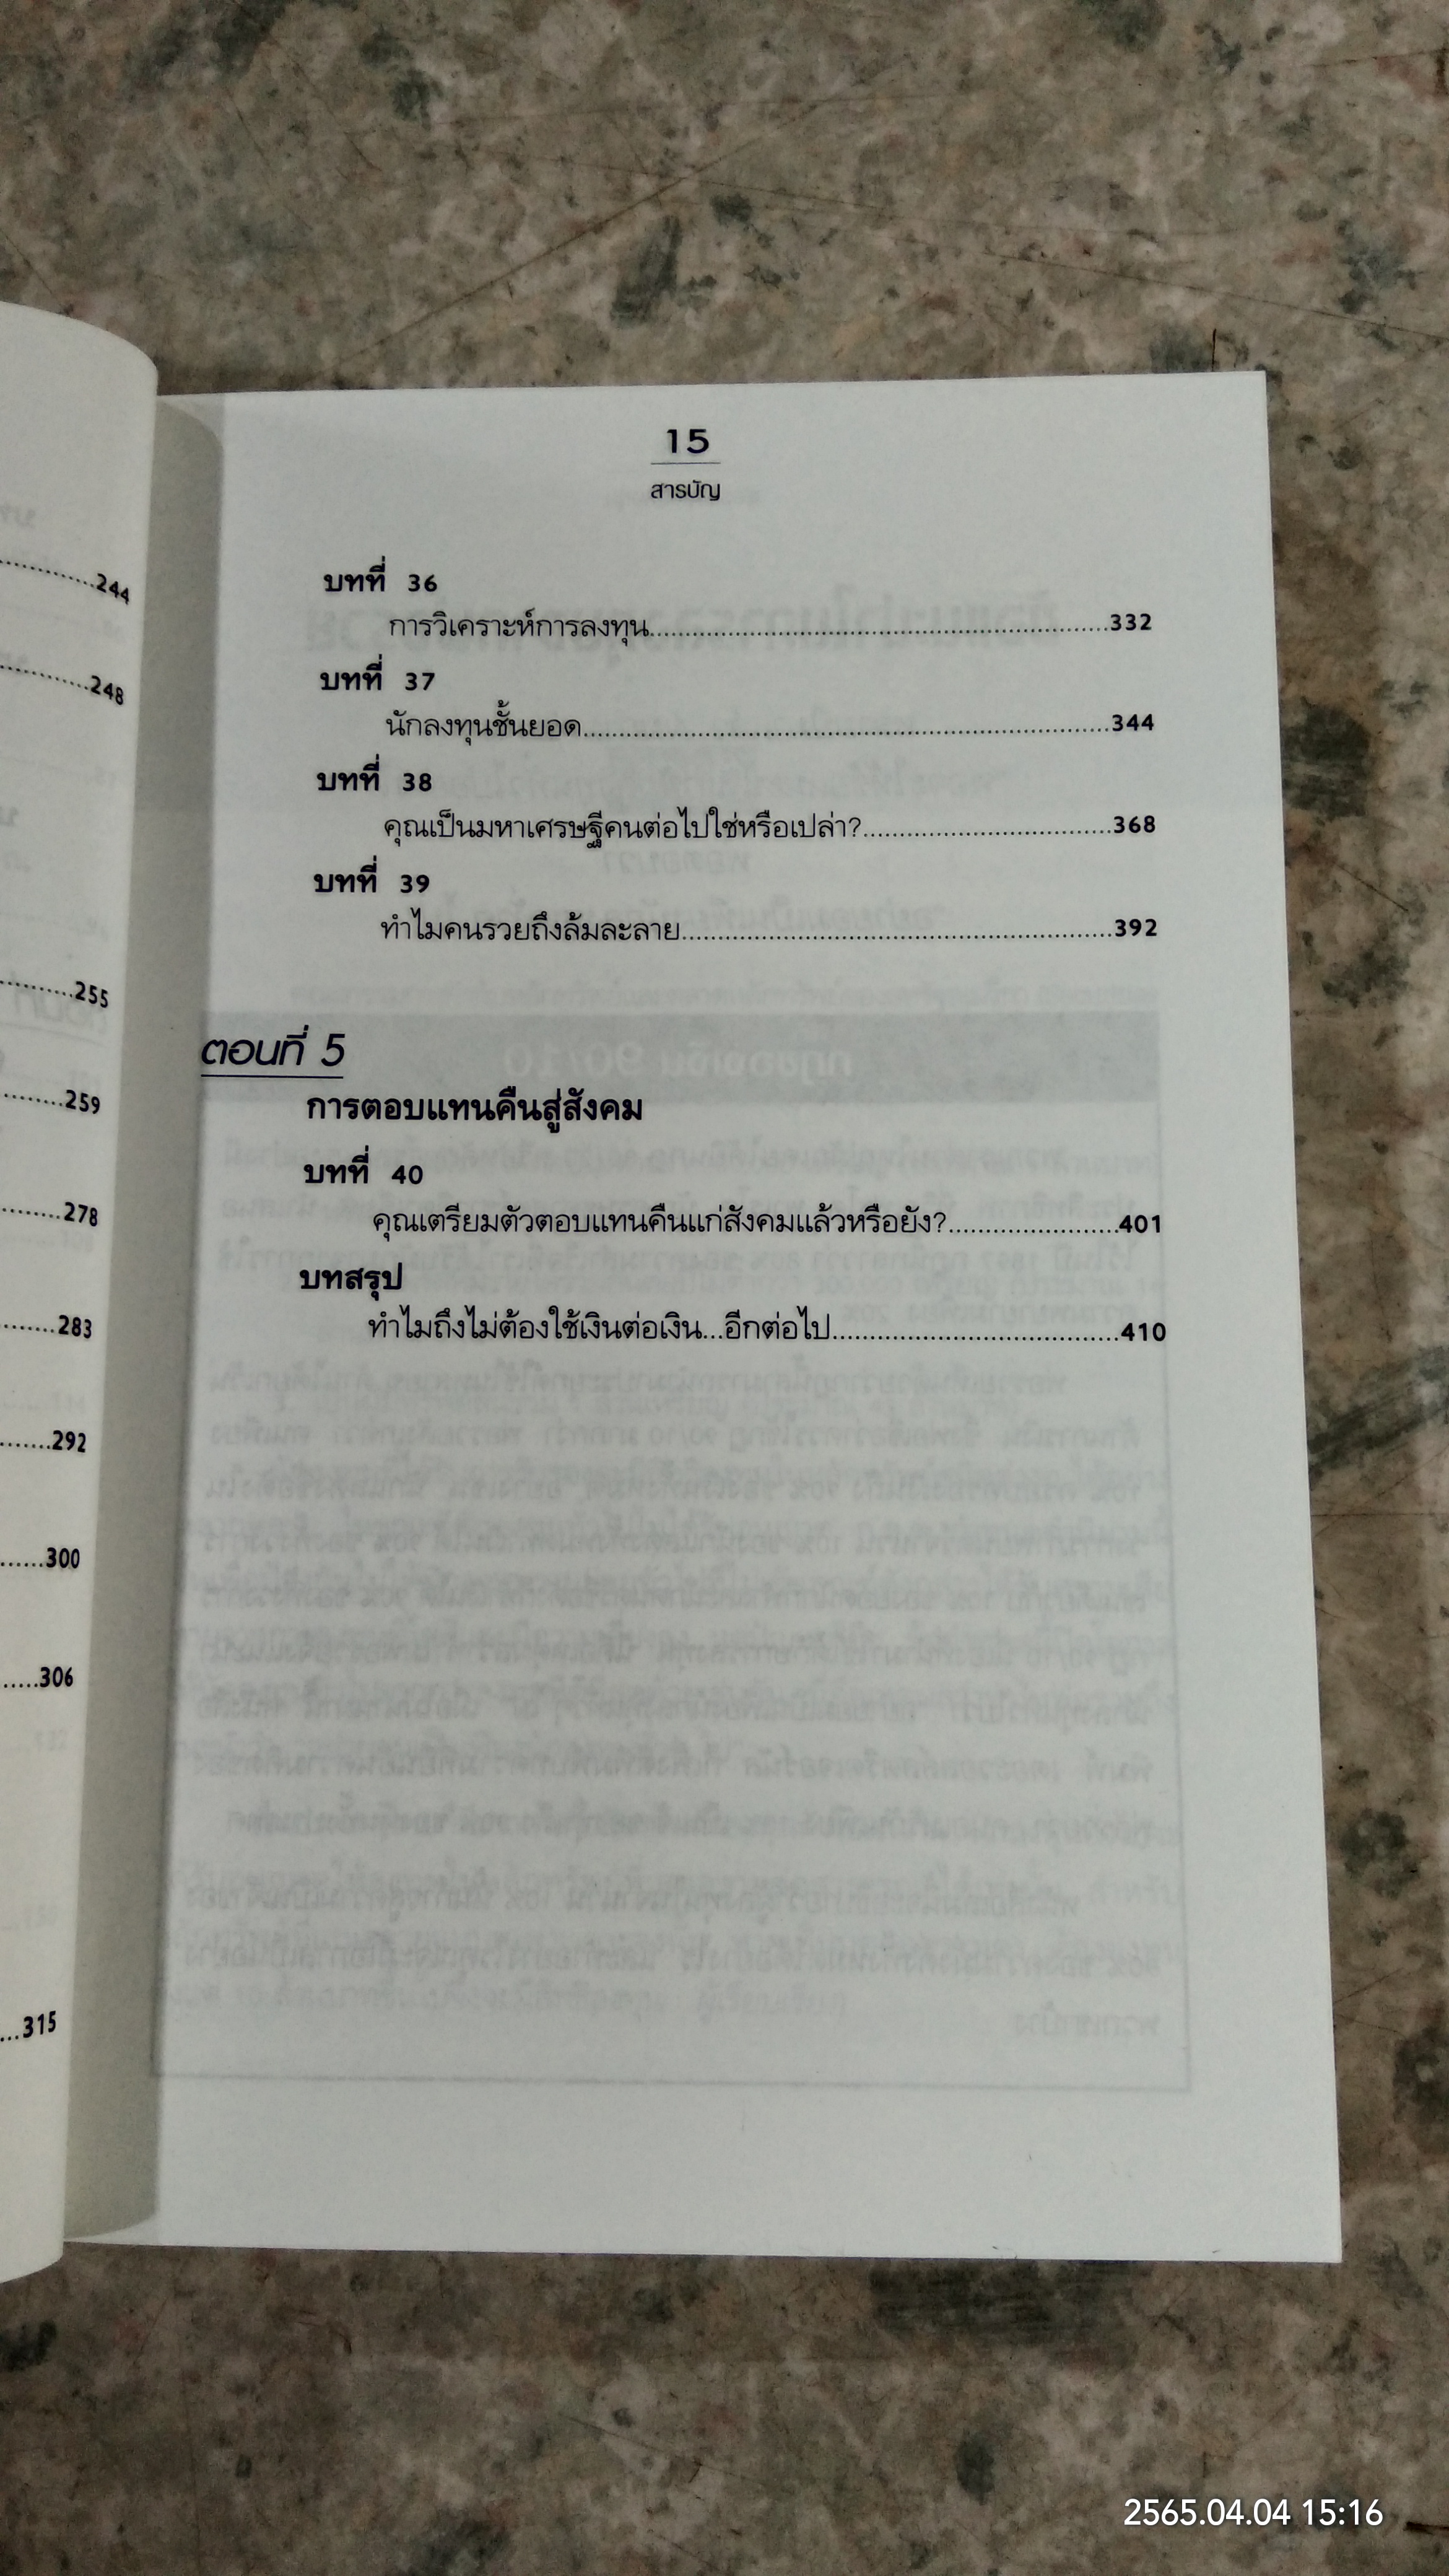 244
248
255
259
278
283
292
300
306
315
15
สารบัญ
บทที่ 36
การวิเคราะห์การลงทุน....332
บทที่ 37
นักลงทุนชั้นยอด....344
บทที่ 38
คุณเป็นมหาเศรษฐีคนต่อไปใช่หรือเปล่า?....368
บทที่ 39
ทำไมคนรวยถึงล้มละลาย....392
ตอนที่ 5
การตอบแทนคืนสู่สังคม
บทที่ 40
คุณเตรียมตัวตอบแทนคืนแก่สังคมแล้วหรือยัง?....401
บทสรุป
ทำไมถึงไม่ต้องใช้เงินต่อเงิน...อีกต่อไป....410
2565.04.04 15:16